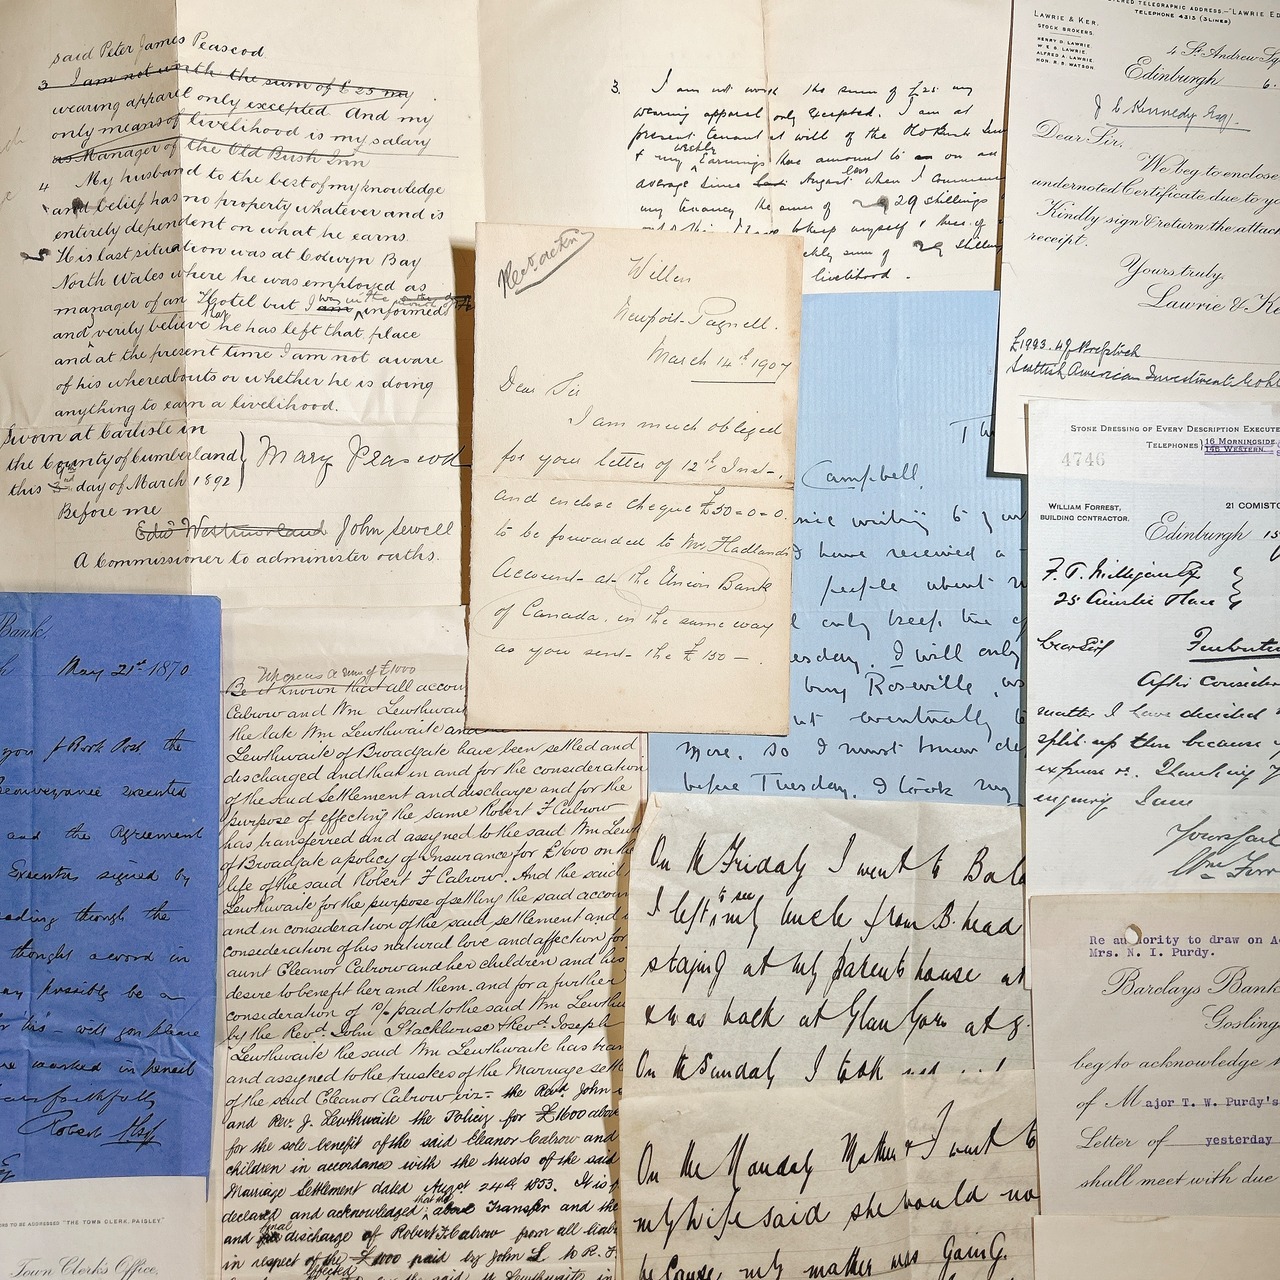 said Peter James Peascod
3 I am not worth the sum of £25 my
wearing apparel only excepted. And my
only means of livelihood is my salary
as Manager of the Old Bush Inn
4 My husband to the best of my knowledge
and belief has no property whatever and is
entirely dependent on what he earns.
His last situation was at Colwyn Bay
North Wales where he was employed as
manager of an Hotel but I am informed
and verily believe that he has left that place
and at the present time I am not aware
of his whereabouts or whether he is doing
anything to earn a livelihood.
Sworn at Carlisle in
the County of Cumberland
this day of March 1892
Mary Peascod
Before me
John Sewell
A Commissioner to administer oaths.
3. I am not worth the sum of £25 my
wearing apparel only excepted. I am at
present tenant at will of the Old Bush Inn
& my weekly earnings have amount to on an
average since last August when I commenc
my tenancy the sum of 29 shillings
keep myself & three of
shilling
livelihood.
LAWRIE & KER.
STOCK BROKERS.
HENRY D. LAWRIE.
W. E. G. LAWRIE.
ALFRED A. LAWRIE.
HON. R. B. WATSON.
TELEGRAPHIC ADDRESS.-"LAWRIE ED
TELEPHONE 4313 (3 LINES)
4 St. Andrew Sq
Edinburgh 6.
J C Kennedy Esq.
Dear Sir,
We beg to enclose
undernoted Certificate due to yo
Kindly sign & return the attach
receipt.
Yours truly,
Lawrie & Ke
£1993.
Scottish American Investment
Rec. ackn
Willen
Newport-Pagnell.
March 14th 1907
Dear Sir
I am much obliged
for your letter of 12th Inst-,
and enclose cheque £50=0=0.
to be forwarded to Mr. Hadland's
Account- at- the Union Bank
of Canada, in the same way
as you sent- the £150 -.
Th
Campbell,
writing to y
I have received a
people about
I only keep the
esday. I will only
buy Roseville, as
but eventually to
more, so I must know de
before Tuesday. I took my
STONE DRESSING OF EVERY DESCRIPTION EXECUTE
TELEPHONES 16 MORNINGSIDE
156 WESTERN.
4746
WILLIAM FORREST,
BUILDING CONTRACTOR.
21 COMISTO
Edinburgh 15
F. T. Milligan
25 Ainslie Place
Dear Sir
After consider
matter I have decided
split up the because
expense &c. Thanking
enquiry I am
Yours faith
Wm Forr
Bank,
May 21st 1870
you p Book Post the
conveyance executed
and the Agreement
Executors signed by
eading through the
thought a word in
may possibly be a
his - will you please
marked in pencil
faithfully
Robert
RS TO BE ADDRESSED "THE TOWN CLERK, PAISLEY"
Town Clerk's Office,
Whereas a sum of £1000
Be it known that all accoun
Calrow and Wm Lewthwait
the late Wm Lewthwaite and
Lewthwaite of Broadgate have been settled and
discharged and that in and for the consideration
of the said Settlement and discharge and for the
purpose of effecting the same Robert F Calrow
has transferred and assigned to the said Wm Lewt
of Broadgate a policy of Insurance for £1600 on the
life of the said Robert F Calrow. And the said
Lewthwaite for the purpose of settling the said accoun
and in consideration of the said settlement and i
consideration of his natural love and affection for
aunt Eleanor Calrow and her children and his
desire to benefit her and them. and for a further
consideration of 10/- paid to the said Wm Lewthw
by the Revd. John Stackhouse & Revd. Joseph
Lewthwaite the said Wm Lewthwaite has tran
and assigned to the trustees of the Marriage sett
of the said Eleanor Calrow viz- the Revd. John
and Rev. J. Lewthwaite the Policy for £1600 above
for the sole benefit of the said Eleanor Calrow and
children in accordance with the trusts of the said
Marriage Settlement dated August 24th 1853. It is
declared and acknowledged that the above Transfer and the
and final discharge of Robert F Calrow from all liab
in respect of the £1000 paid by John L to R. F.
effected
On the Friday I went to Bala
I left to see my uncle from B. head
staying at my parents house at
was back at Glan Gors at 8.
On the Sunday I took
On the Monday Mother & I went to
my wife said she would no
because my mother was Going.
Re authority to draw on A
Mrs. N. I. Purdy.
Barclays Bank
Gosling
beg to acknowledge
of Major T. W. Purdy's
Letter of yesterday
shall meet with due